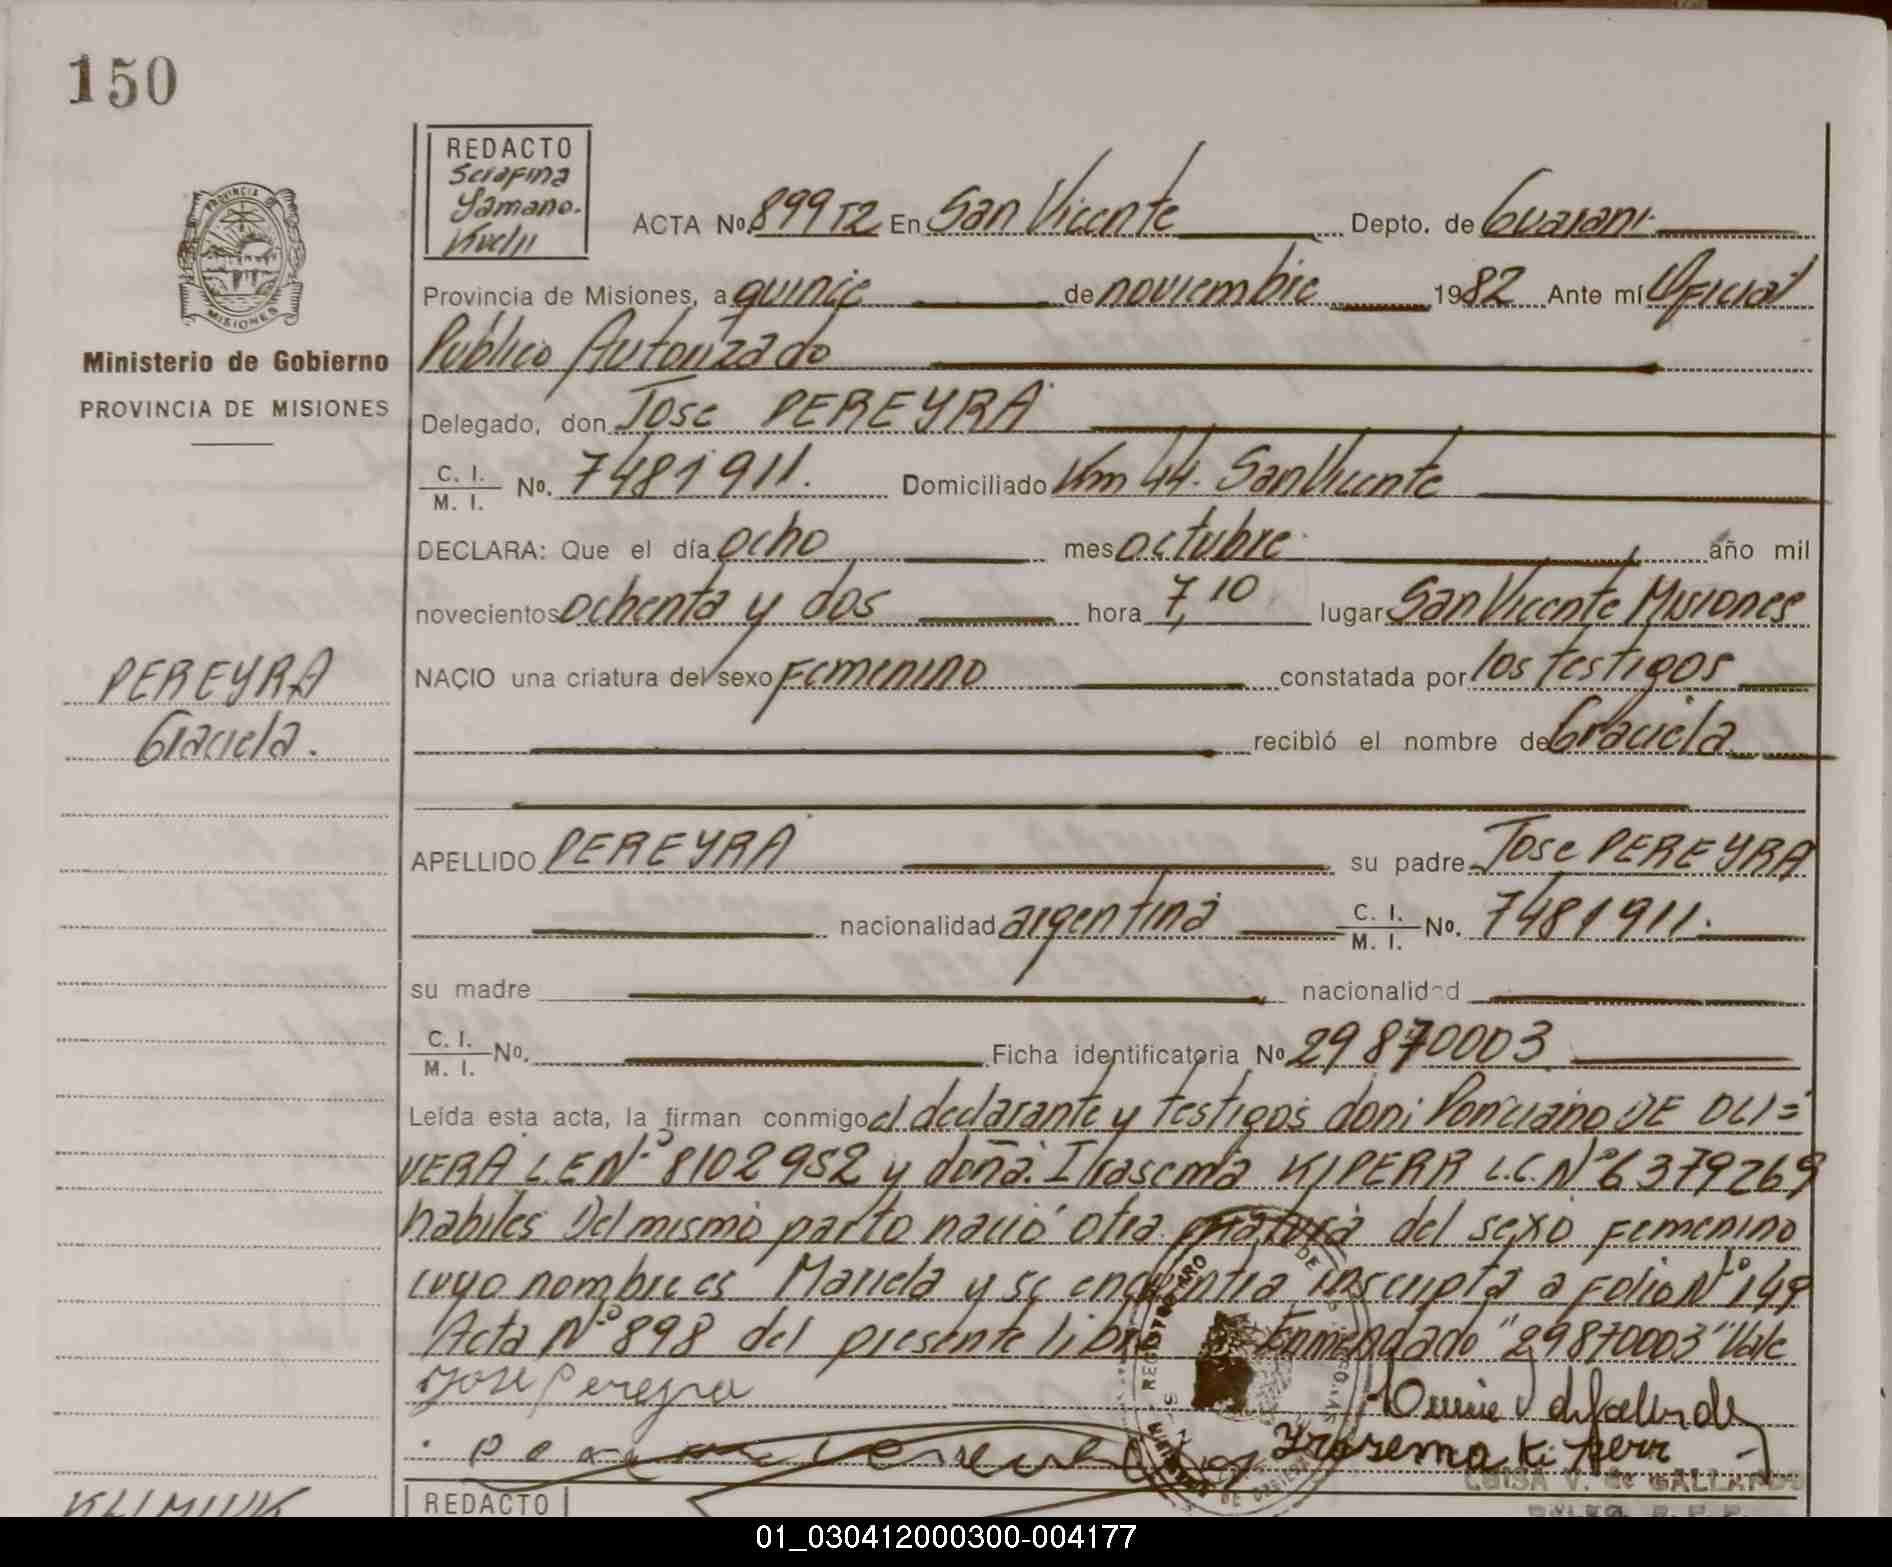 150
REDACTO
Serafina
Yamano.
PROVINCIA
MISIONES
ACTA No. 899 T2 En San Vicente Depto. de Guarani
Provincia de Misiones, a quince de noviembre 1982 Ante mí Oficial
Ministerio de Gobierno
PROVINCIA DE MISIONES
Público Autorizado
Delegado, don Jose PEREYRA
C. I. / M. I. No. 7481911. Domiciliado Km 44. San Vicente
DECLARA: Que el día ocho mes octubre año mil
novecientos ochenta y dos hora 7,10 lugar San Vicente Misiones
PEREYRA
Graciela.
NACIO una criatura del sexo Femenino constatada por los testigos
recibió el nombre de Graciela
APELLIDO PEREYRA su padre Jose PEREYRA
nacionalidad argentina C. I. / M. I. No. 7481911.
su madre nacionalidad
C. I. / M. I. No. Ficha identificatoria No 29870003
Leída esta acta, la firman conmigo el declarante y testigos don: Ponciano DE OLI=
VERA L.E Nº 8102952 y doña: Irasema KIPERR L.C. Nº 6379269
habiles Del mismo parto nació otra criatura del sexo Femenino
cuyo nombre es Mariela y se encuentra inscripta a Folio Nº 149
Acta Nº 898 del presente libro Enmendado "29870003" Vale
Jose Pereyra
Yrasema Kiperr
LUISA V. de GALLARDO
REDACTO
01_030412000300-004177